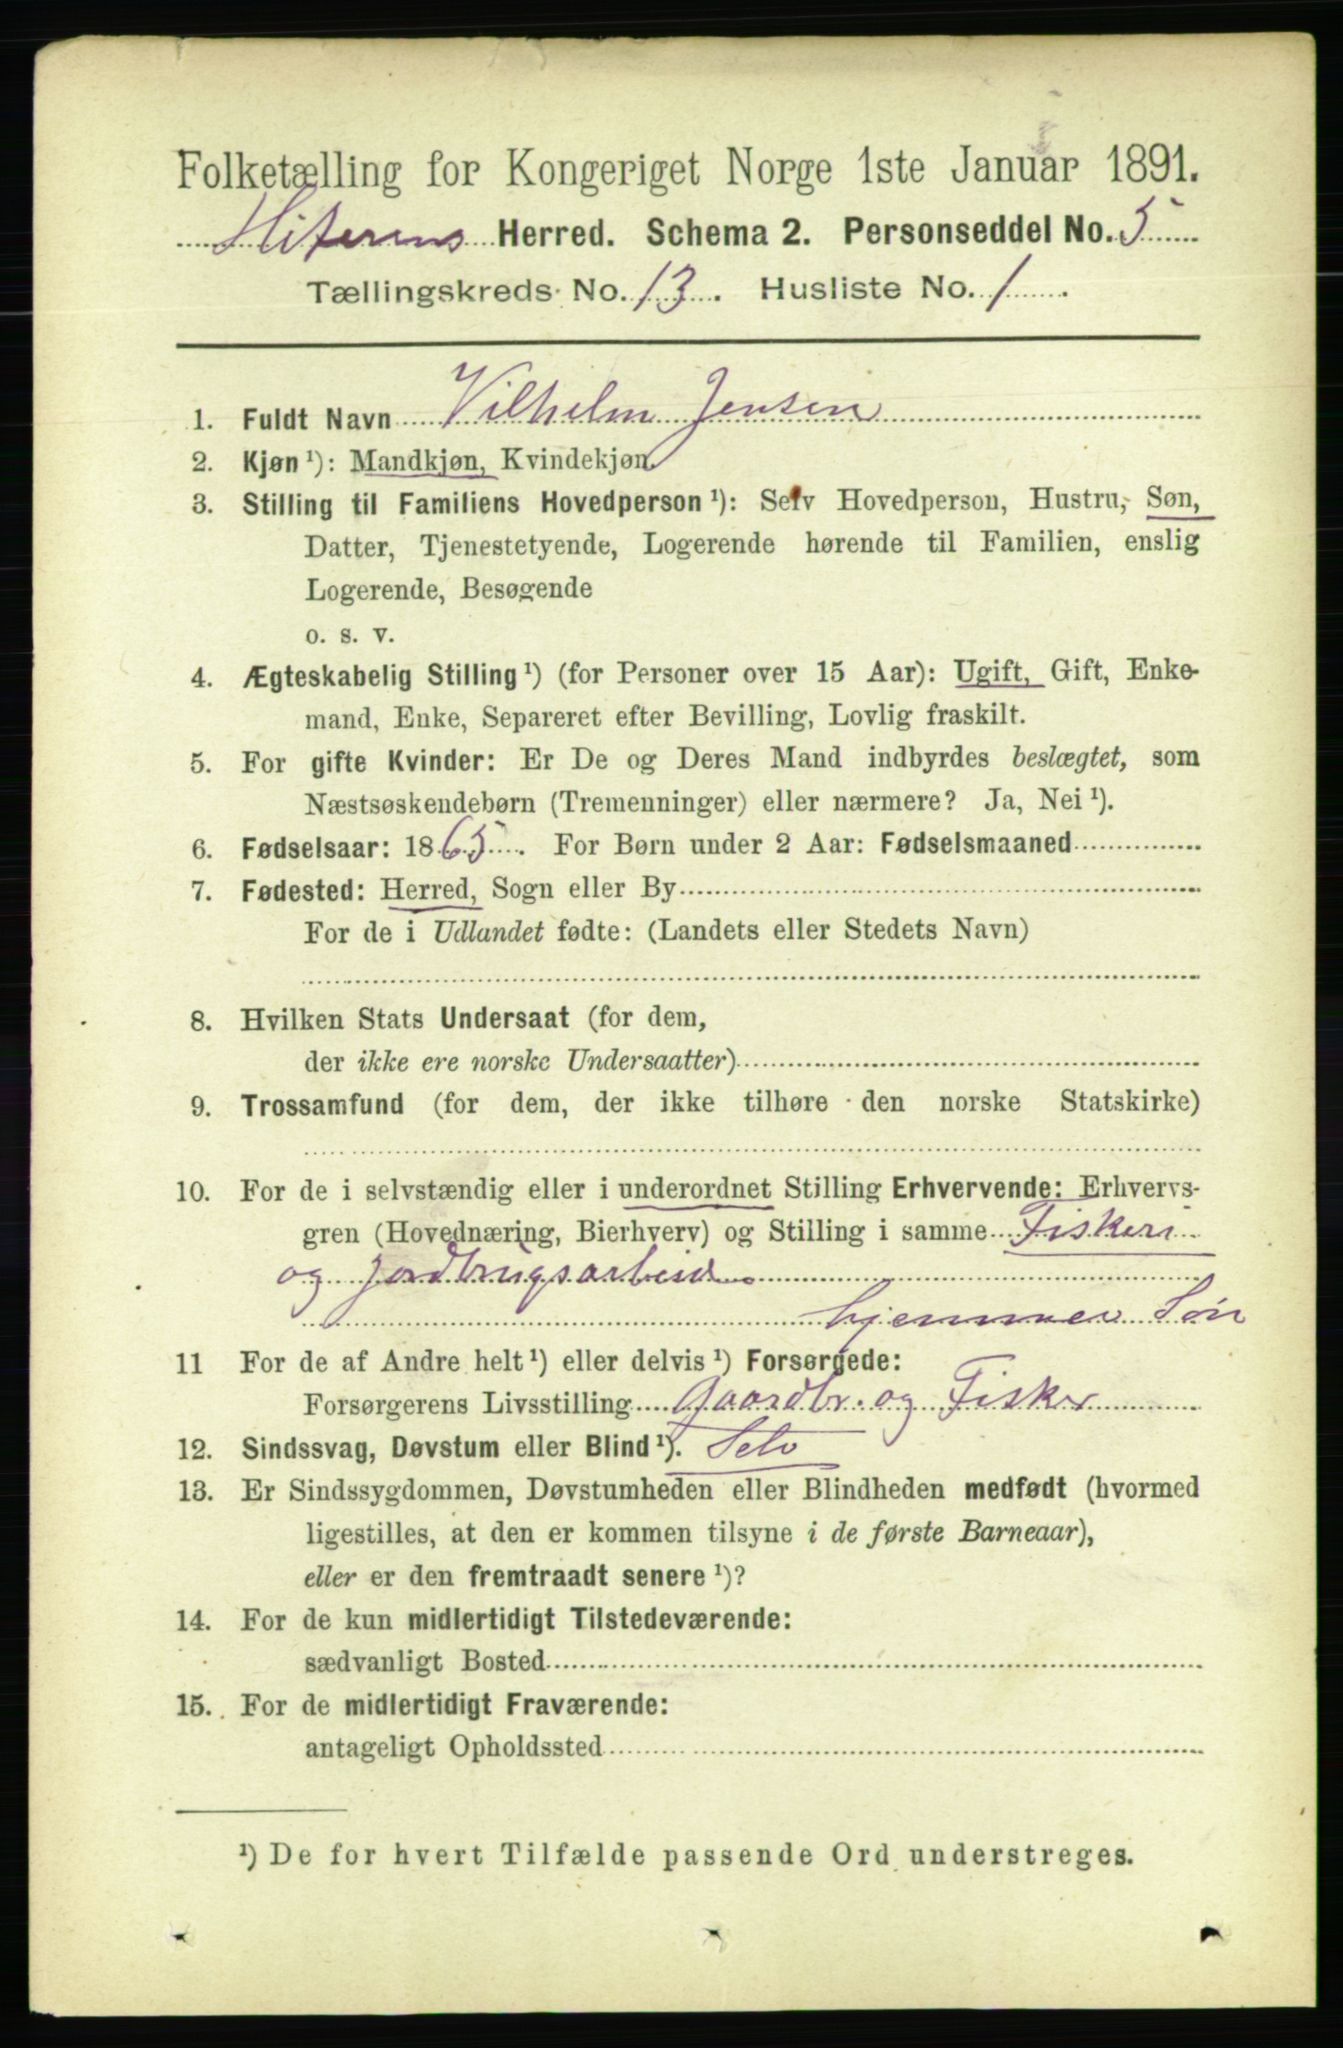 Folketælling for Kongeriget Norge 1ste Januar 1891.
Hiterens Herred. Schema 2. Personseddel No. 5
Tællingskreds No. 13. Husliste No. 1.
1. Fuldt Navn Vilhelm Jensen
2. Kjøn ¹): Mandkjøn, Kvindekjøn.
3. Stilling til Familiens Hovedperson ¹): Selv Hovedperson, Hustru, Søn,
Datter, Tjenestetyende, Logerende hørende til Familien, enslig
Logerende, Besøgende
o. s. v.
4. Ægteskabelig Stilling ¹) (for Personer over 15 Aar): Ugift, Gift, Enke-
mand, Enke, Separeret efter Bevilling, Lovlig fraskilt.
5. For gifte Kvinder: Er De og Deres Mand indbyrdes beslægtet, som
Næstsøskendebørn (Tremenninger) eller nærmere? Ja, Nei ¹).
6. Fødselsaar: 1865. For Børn under 2 Aar: Fødselsmaaned
7. Fødested: Herred, Sogn eller By
For de i Udlandet fødte: (Landets eller Stedets Navn)
8. Hvilken Stats Undersaat (for dem,
der ikke ere norske Undersaatter)
9. Trossamfund (for dem, der ikke tilhøre den norske Statskirke)
10. For de i selvstændig eller i underordnet Stilling Erhvervende: Erhvervs-
gren (Hovednæring, Bierhverv) og Stilling i samme Fiskeri
og Jordbrugsarbeid.
hjemmev. Søn
11 For de af Andre helt ¹) eller delvis ¹) Forsørgede:
Forsørgerens Livsstilling Gaardbr. og Fisker
12. Sindssvag, Døvstum eller Blind ¹). Selv
13. Er Sindssygdommen, Døvstumheden eller Blindheden medfødt (hvormed
ligestilles, at den er kommen tilsyne i de første Barneaar),
eller er den fremtraadt senere ¹)?
14. For de kun midlertidigt Tilstedeværende:
sædvanligt Bosted
15. For de midlertidigt Fraværende:
antageligt Opholdssted
¹) De for hvert Tilfælde passende Ord understreges.